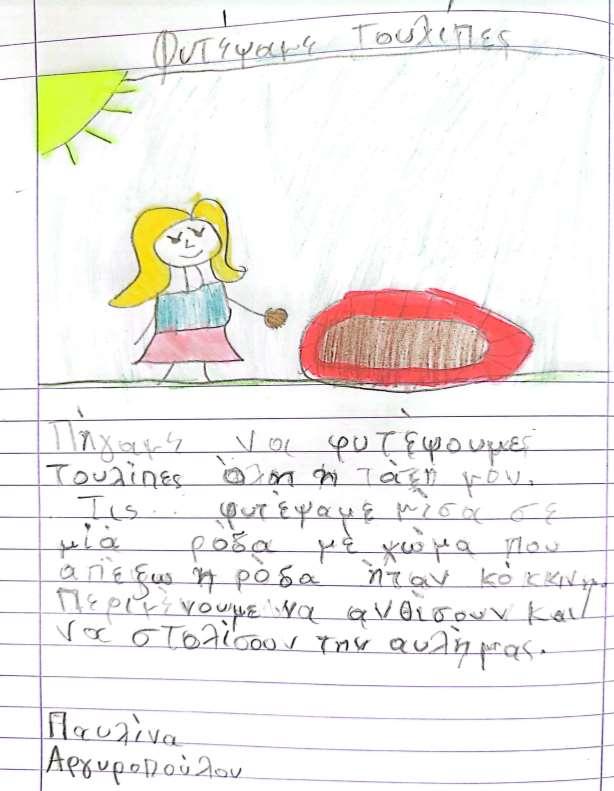 Φυτέψαμε Τουλίπες
Πήγαμε να φυτέψουμες
Τουλίπες όλη η τάξη μου.
Τις φυτέψαμε μέσα σε
μία ρόδα με χώμα που
απέξω η ρόδα ήταν κόκκινη.
Περιμένουμε να ανθίσουν και
να στολίσουν την αυλή μας.
Παυλίνα
Αργυροπούλου